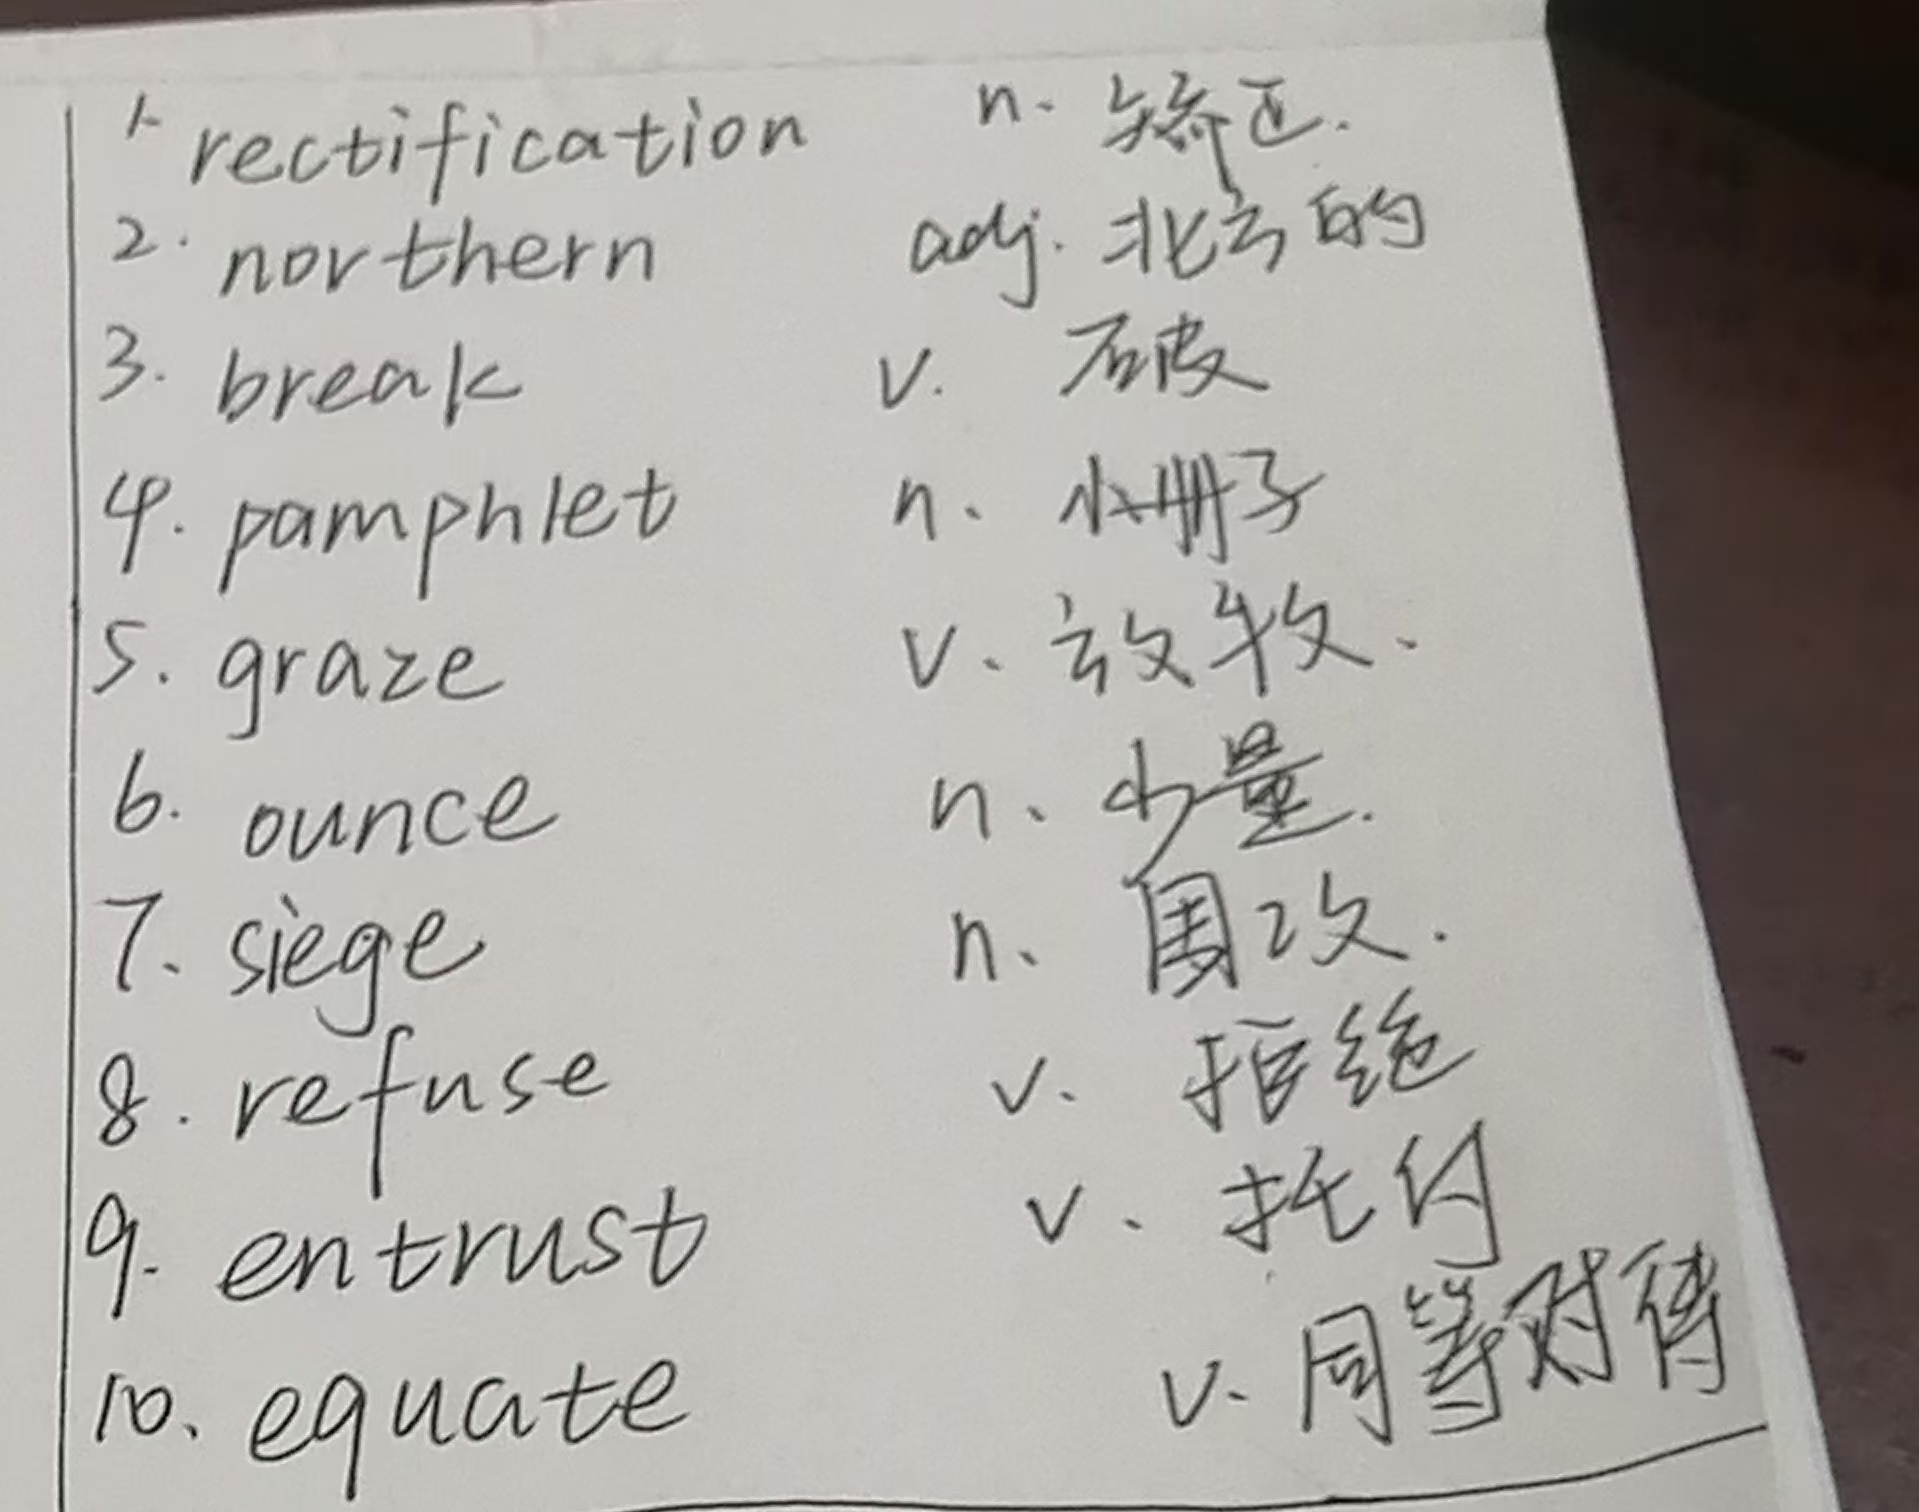 1. rectification n. 矫正.
2. northern adj. 北方的
3. break v. 破
4. pamphlet n. 小册子
5. graze v. 放牧.
6. ounce n. 少量.
7. siege n. 围攻.
8. refuse v. 拒绝
9. entrust v. 托付
10. equate v. 同等对待